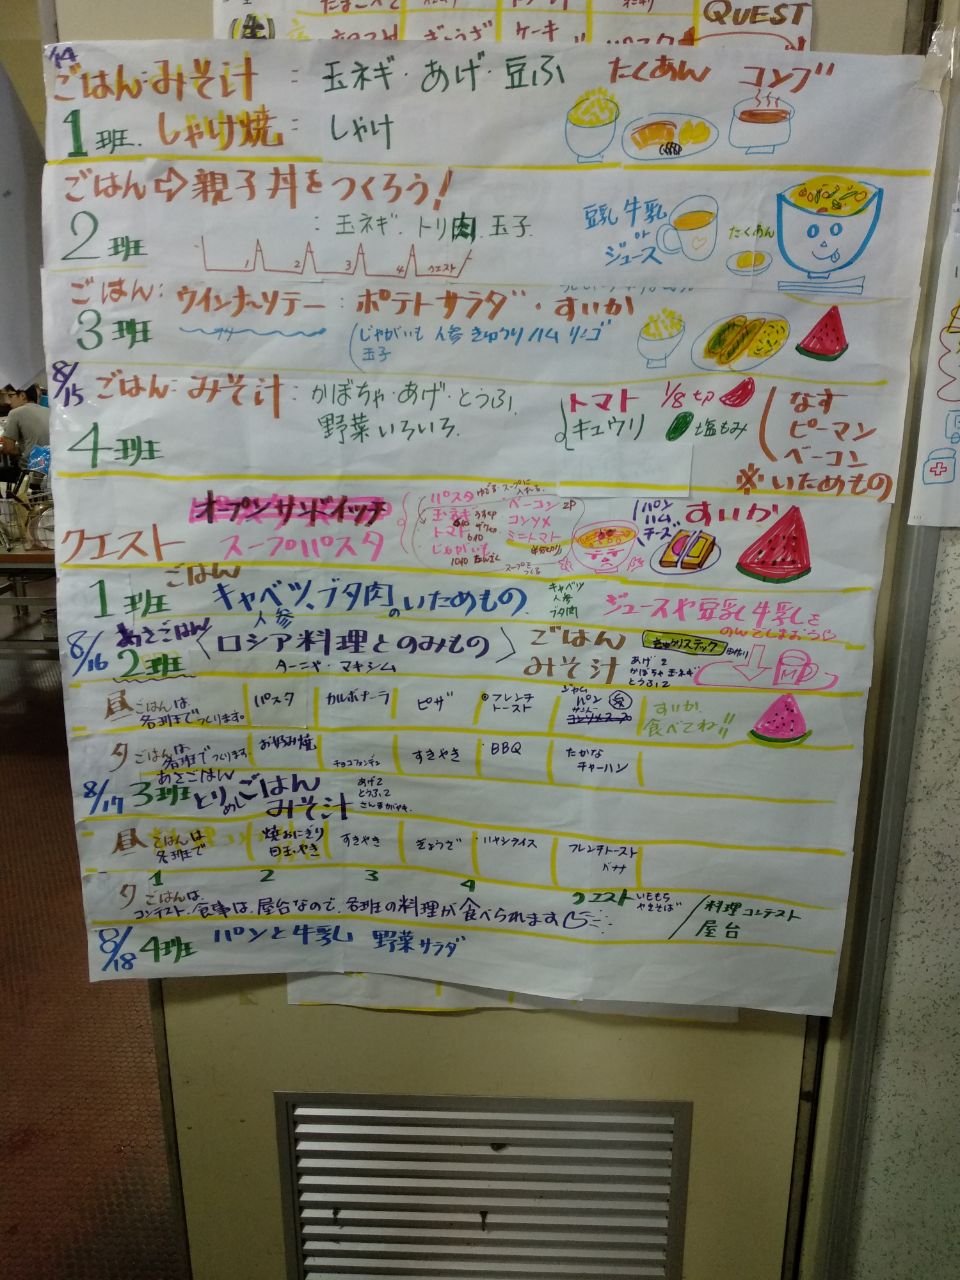 QUEST
ケーキ
14
ごはん:みそ汁 : 玉ネギ・あげ・豆ふ たくあん コンブ
1班. しゃけ焼: しゃけ
ごはん⇨親子丼をつくろう!
2班 : 玉ネギ. トリ肉. 玉子
1 2 3 4 クエスト
豆乳 牛乳 or ジュース
たくあん
ごはん: ウインナーソテー : ポテトサラダ・すいか
3班 じゃがいも 人参 きゅうり ハム リンゴ
玉子
8/15 ごはん: みそ汁 : かぼちゃ・あげ・とうふ.
4班 野菜いろいろ.
トマト 1/8切
キュウリ 塩もみ
なす
ピーマン
ベーコン
※いためもの
クエスト オープンサンドイッチ
スープパスタ
パスタ ゆでる スープに入れる
玉ネギ
トマト
じゃがいも
ベーコン
コンソメ
ミニトマト
スープをつくる
パン
ハム
チーズ
すいか
ごはん
1班 キャベツ、ブタ肉のいためもの
人参
キャベツ
人参
ブタ肉
ジュースや豆乳牛乳を
のんでしまおう
8/16 あさごはん
2班 〈ロシア料理とのみもの〉
ターニャ・マキシム
ごはん
みそ汁
きゅうりスティック
あげ 2
かぼちゃ 玉ネギ
とうふ. 2
昼ごはんは
各班でつくります。
パスタ カルボナーラ ピザ フレンチトースト ジャムパン
すいか
食べてね!!
夕ごはんは
各班でつくります
お好み焼 チョコフォンデュ すきやき BBQ たかなチャーハン
あさごはん
8/17 3班 とりめし ごはん
みそ汁
あげ2
とうふ. 2
昼ごはんは
各班で
焼おにぎり
目玉やき
すきやき ぎょうざ ハヤシライス フレンチトースト
バナナ
1 2 3 4 クエスト
夕ごはんは
コンテスト. 食事は. 屋台なので. 各班の料理が食べられます
いももち
やきそば
料理コンテスト
屋台
8/18 4班 パンと牛乳 野菜サラダ